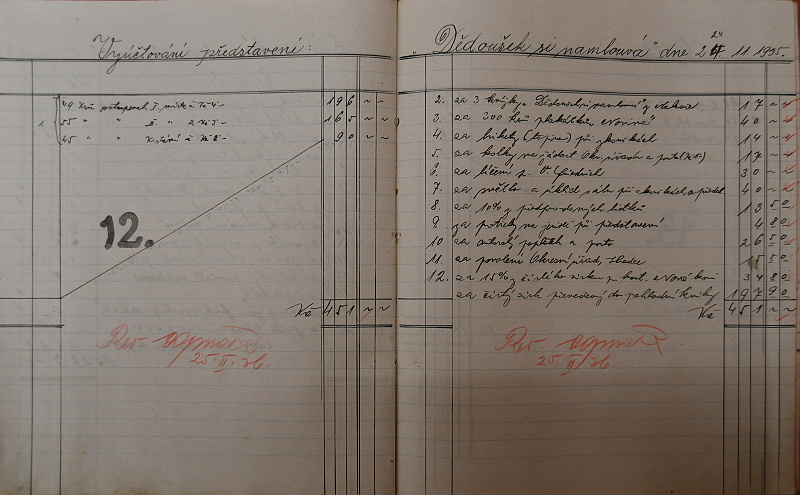 Vyúčtování představení:
49 Kusů vstupenek I. míst à Kč 4- 196 ~ ~
1. 55 " " II. " à Kč 3- 165 ~ ~
45 " K stání à Kč 2- 90 ~ ~
12.
Kč 451 ~ ~
Rev.
25.II.36.
"Dědoušek si namlouvá" dne 24 11. 1935.
2. za 3 knížky "Dědoušek si namlouvá" 17 ~ ~
3. za 300 kusů plakátků 40 ~ ~
4. za brikety (topivo) při zkouškách 14 ~ ~
5. za kolky na žádost Okr. úřadu a 17 ~ ~
6. za líčení p. 30 ~ ~
7. za světlo a úklid sálu při zkouškách a předst. 40 ~ ~
8. za 10% z předprodaných lístků 13 50
9. za potřeby na jeviště při představení 4 80
10. za autorský poplatek a porto 26 50
11. za povolení Okresní úřad, 15 50
12. za 15% z čistého zisku 34 80
za čistý zisk převedený do pokladní knihy 197 90
Kč 451 ~ ~
Rev.
25.II/36.